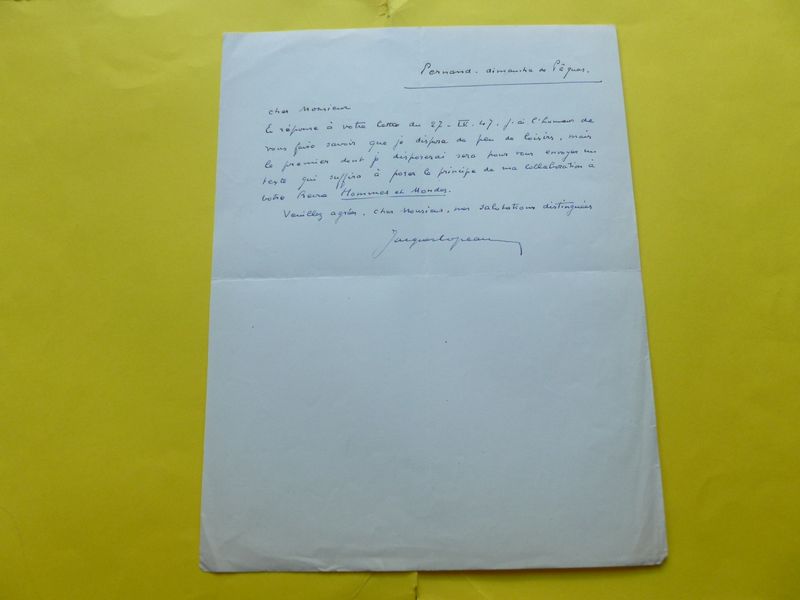 Pernand. dimanche de Pâques.
cher Monsieur
En réponse à votre lettre du 27. IX. 47. j'ai l'honneur de
vous faire savoir que je dispose de peu de loisirs, mais
le premier dont je disposerai sera pour vous envoyer un
texte qui suffira à poser le principe de ma collaboration à
votre Revue Hommes et Mondes.
Veuillez agréer, cher Monsieur, mes salutations distinguées
Jacques Copeau